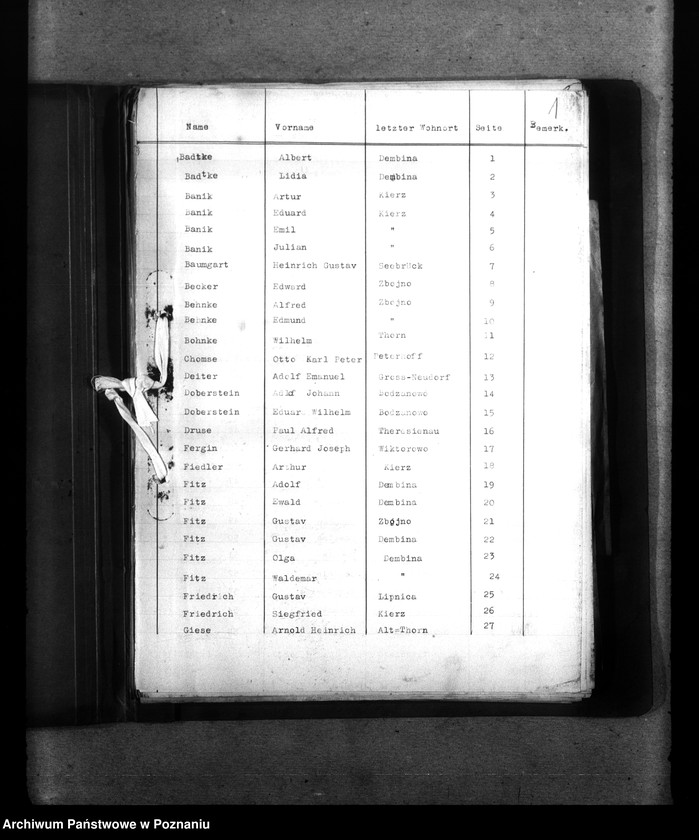 1
Name Vorname letzter Wohnort Seite Bemerk.
Badtke Albert Dembina 1
Badtke Lidia Dembina 2
Banik Artur Kierz 3
Banik Eduard Kierz 4
Banik Emil " 5
Banik Julian " 6
Baumgart Heinrich Gustav Seebrück 7
Becker Edward Zbojno 8
Behnke Alfred Zbojno 9
Behnke Edmund " 10
Bohnke Wilhelm Thorn 11
Chomse Otto Karl Peter Peterhoff 12
Deiter Adolf Emanuel Gross-Neudorf 13
Doberstein Adolf Johann Bodzanowo 14
Doberstein Eduard Wilhelm Bodzanowo 15
Druse Paul Alfred Theresienau 16
Fergin Gerhard Joseph Wiktorowo 17
Fiedler Arthur Kierz 18
Fitz Adolf Dembina 19
Fitz Ewald Dembina 20
Fitz Gustav Zbójno 21
Fitz Gustav Dembina 22
Fitz Olga Dembina 23
Fitz Waldemar " 24
Friedrich Gustav Lipnica 25
Friedrich Siegfried Kierz 26
Giese Arnold Heinrich Alt-Thorn 27
Archiwum Państwowe w Poznaniu